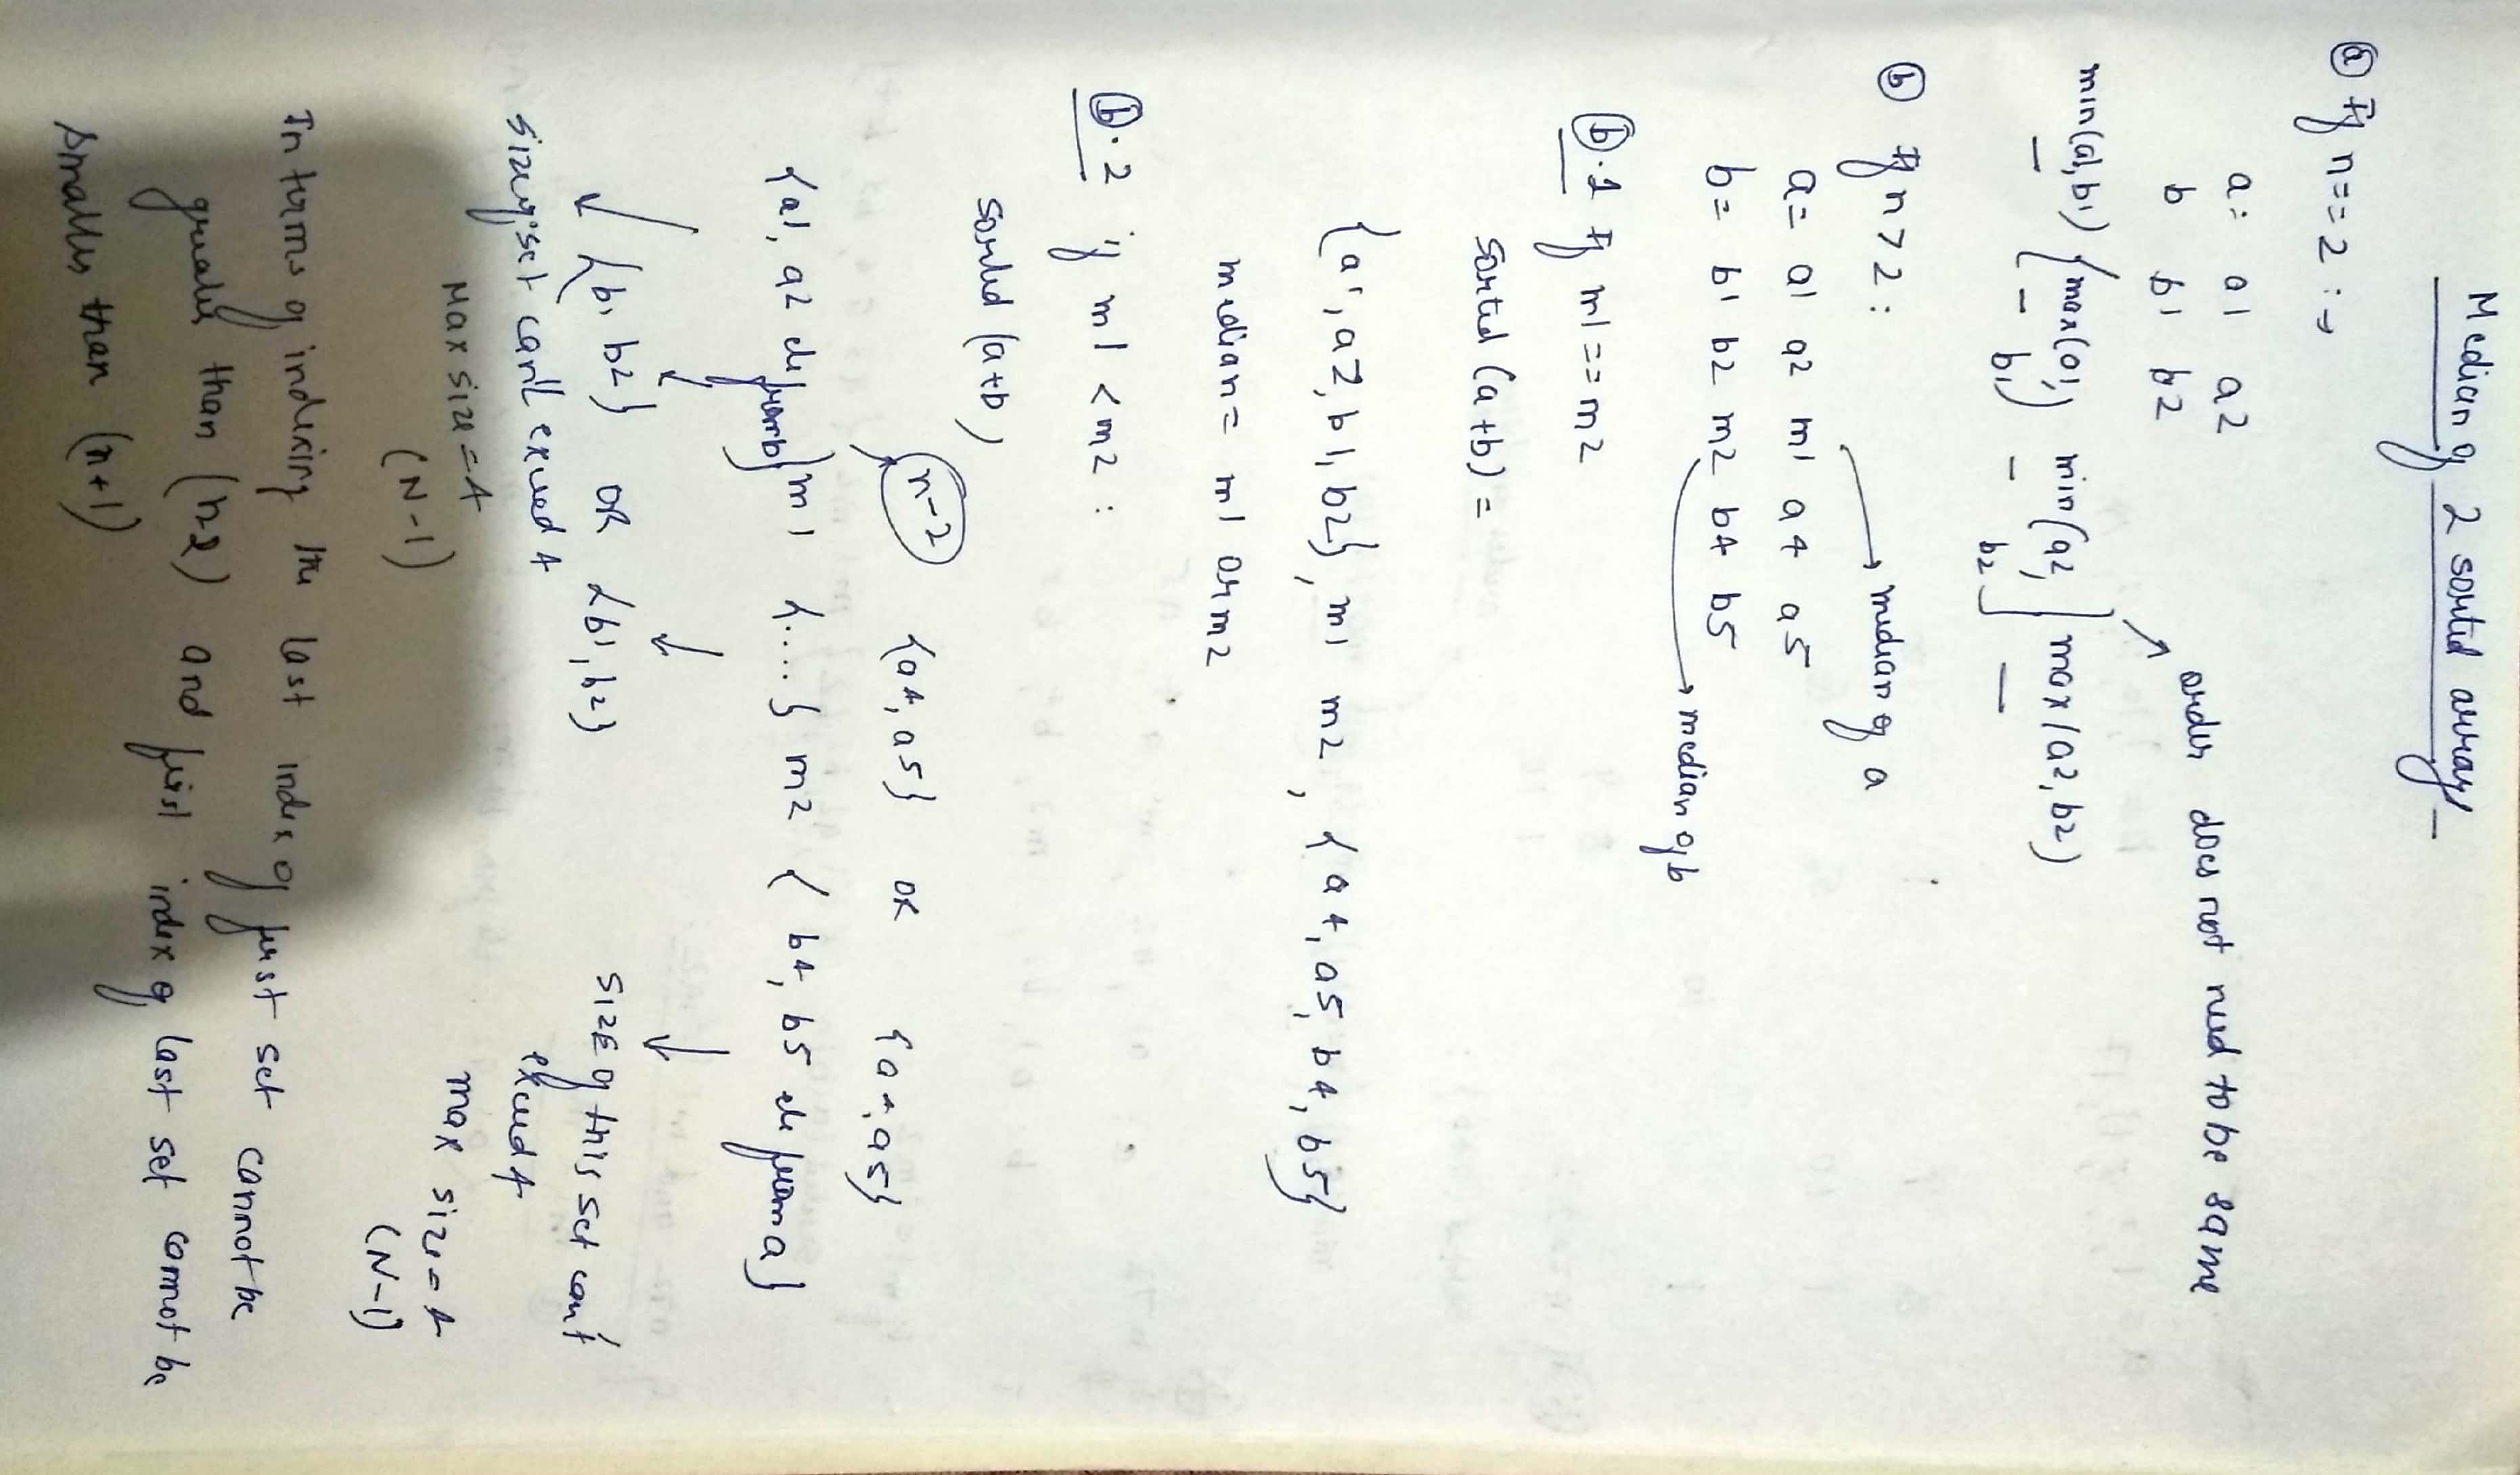 Median of 2 sorted arrays
(a) If n==2 :→
a: a1 a2
b b1 b2
order does not need to be same
min(a1,b1) {max(a1, b1) min(a2, b2} max(a2,b2)
(b) If n>2:
median of a
a= a1 a2 m1 a4 a5
b= b1 b2 m2 b4 b5
median of b
(b).1 If m1==m2
sorted (a+b) =
{a1, a2, b1, b2}, m1 m2, {a4, a5, b4, b5}
median= m1 or m2
(b).2 if m1 <m2 :
sorted (a+b)
n-2 {a4, a5} OR {a4, a5}
{a1, a2 ele from b} m1 {....} m2 { b4, b5 ele from a}
{b1 b2} OR {b1, b2}
size of set can't exceed 4
Max size=4
(N-1)
SIZE of this set can't
exceed 4
max size=4
(N-1)
In terms of indexing the last index of first set cannot be
greater than (n-2) and first index of last set cannot be
smaller than (n+1)